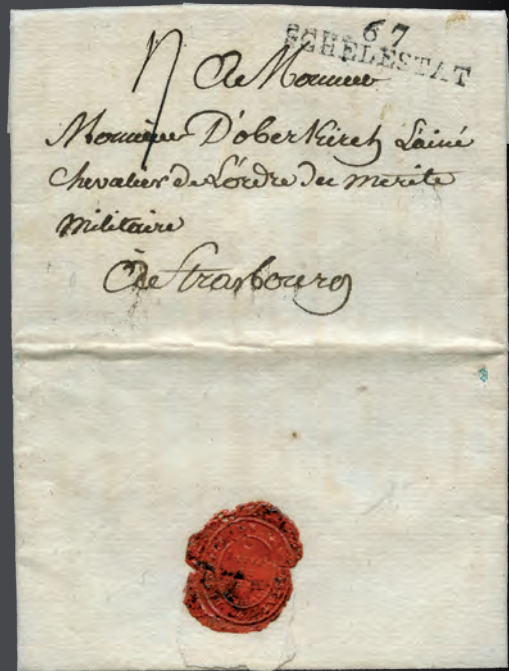 67
SCHELESTAT
A Monsieur
Monsieur D'oberKirch L'ainé
Chevalier de L'ordre du merite
militaire
A Strasbourg